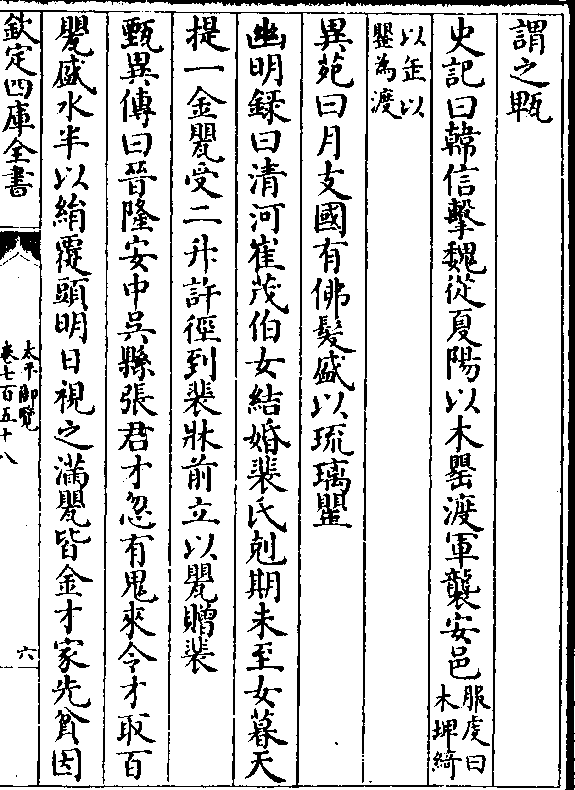 謂之㼚
史記曰韓信擊魏從夏陽以木罌渡軍襲安邑服虔曰木柙綺
以缶以罌為渡
異苑曰月支國有佛髮盛以琉璃罌
幽明録曰清河崔茂伯女結婚裴氏剋期未至女暮天
提一金甖受二升許徑到裴牀前立以甖贈裴
甄異傳曰晉隆安中吳縣張君才忽有鬼來令才取百
甖盛水半以絹覆頭明日視之滿甖皆金才家先貧因
欽定四庫全書
太平御覽
卷七百五十八
六